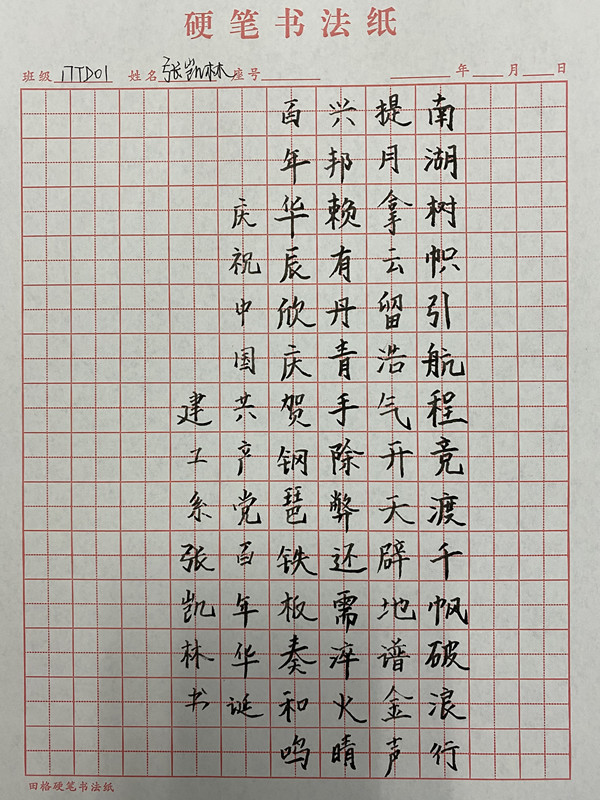 硬笔书法纸
班级 17TD01 姓名 张凯林 座号 年 月 日
南湖树帜引航程竞渡千帆破浪行
提月拿云留浩气开天辟地谱金声
兴邦赖有丹青手除弊还需淬火睛
百年华辰欣庆贺钢琶铁板奏和鸣
庆祝中国共产党百年华诞
建工系张凯林书
田格硬笔书法纸